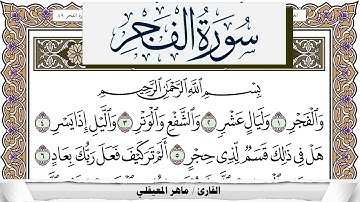 سورة الفجر
بِسْمِ اللَّهِ الرَّحْمَٰنِ الرَّحِيمِ
وَالْفَجْرِ ١ وَلَيَالٍ عَشْرٍ ٢ وَالشَّفْعِ وَالْوَتْرِ ٣ وَاللَّيْلِ إِذَا يَسْرِ ٤
هَلْ فِي ذَٰلِكَ قَسَمٌ لِّذِي حِجْرٍ ٥ أَلَمْ تَرَ كَيْفَ فَعَلَ رَبُّكَ بِعَادٍ ٦
القارئ / ماهر المعيقلي